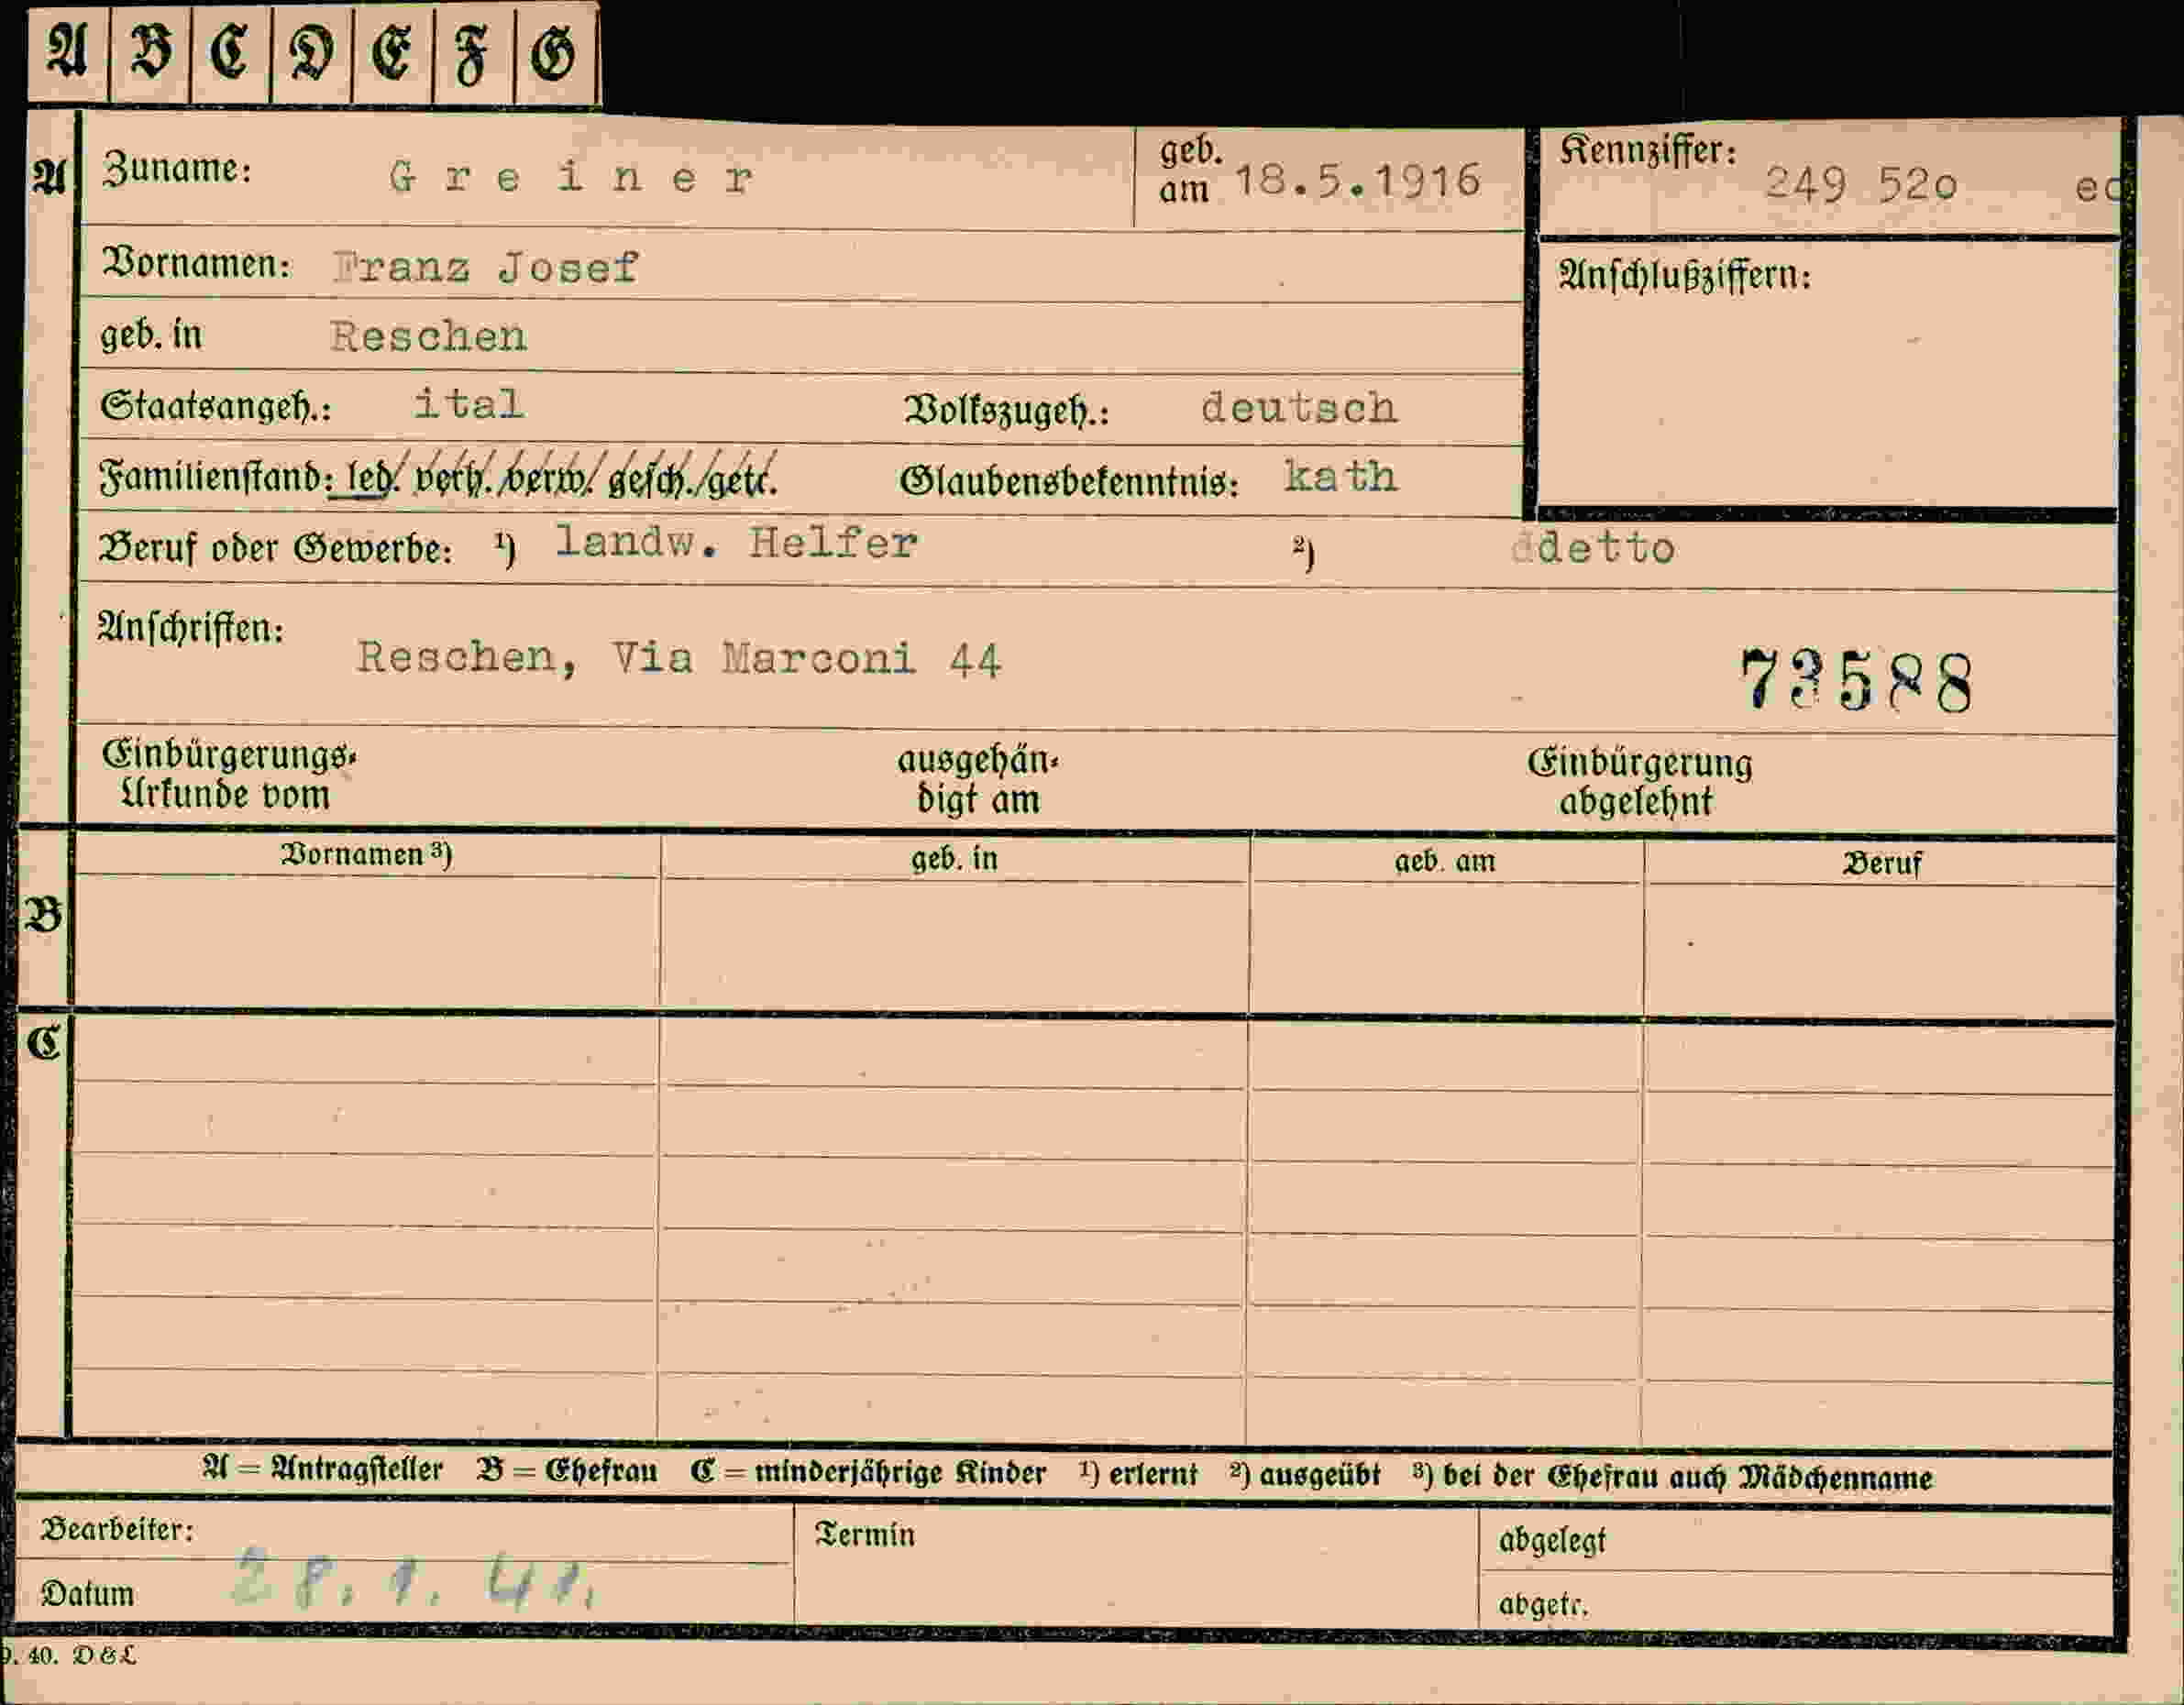 A B C D E F G
A Zuname: Greiner geb. am 18.5.1916 Kennziffer: 249 52o
Vornamen: Franz Josef Anschlußziffern:
geb. in Reschen
Staatsangeh.: ital Volkszugeh.: deutsch
Familienstand: led. verh. verw. gesch. getr. Glaubensbekenntnis: kath
Beruf oder Gewerbe: ¹) landw. Helfer ²) ddetto
Anschriften:
Reschen, Via Marconi 44 73588
Einbürgerungs- Urkunde vom ausgehän- digt am Einbürgerung abgelehnt
Vornamen ³) geb. in geb. am Beruf
B
C
A = Antragsteller B = Ehefrau C = minderjährige Kinder ¹) erlernt ²) ausgeübt ³) bei der Ehefrau auch Mädchenname
Bearbeiter: Termin abgelegt
Datum 28. 1. 41. abgetr.
9. 40. D & L